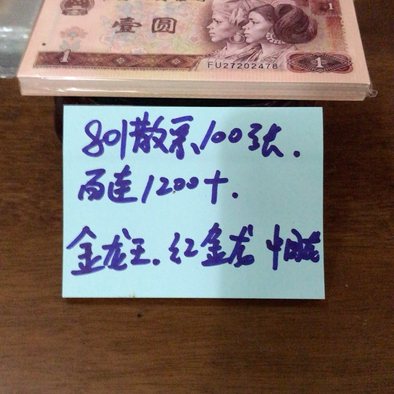 壹圆
1
FU27202476
1
801散票100张.
百连1200十.
金龙王.红金龙